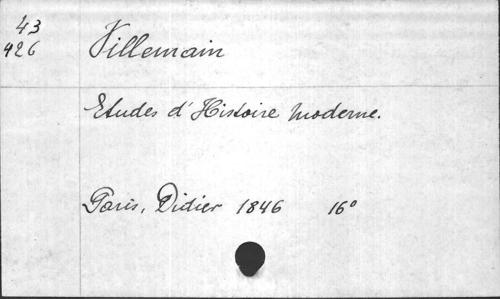 43
426
Villemain
Etudes d'Histoire moderne.
Paris, Didier 1846 16°